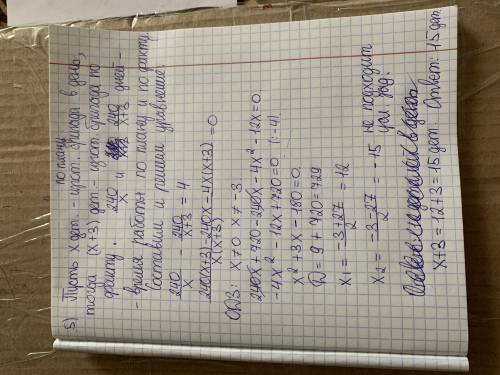 по плану
5) Пусть x дет. - изгот. бригада в день,
тогда (x+3) дет. - изгот. бригада по
факту. 240/x и 240/x+3 дней -
- время работы по плану и по факту.
Составим и решим уравнение:
240/x - 240/x+3 = 4
240(x+3)-240x-4x(x+3)/x(x+3) = 0
ОДЗ: x≠0 x≠-3
240x+720-240x-4x²-12x=0
-4x²-12x+720=0 |:(-4)
x²+3x-180=0
D=9+720=729
x₁= -3+27/2 = 12
x₂= -3-27/2 = -15 не подходит
усл. зад.
в день
x+3=12+3=15 дет. Ответ: 15 дет.